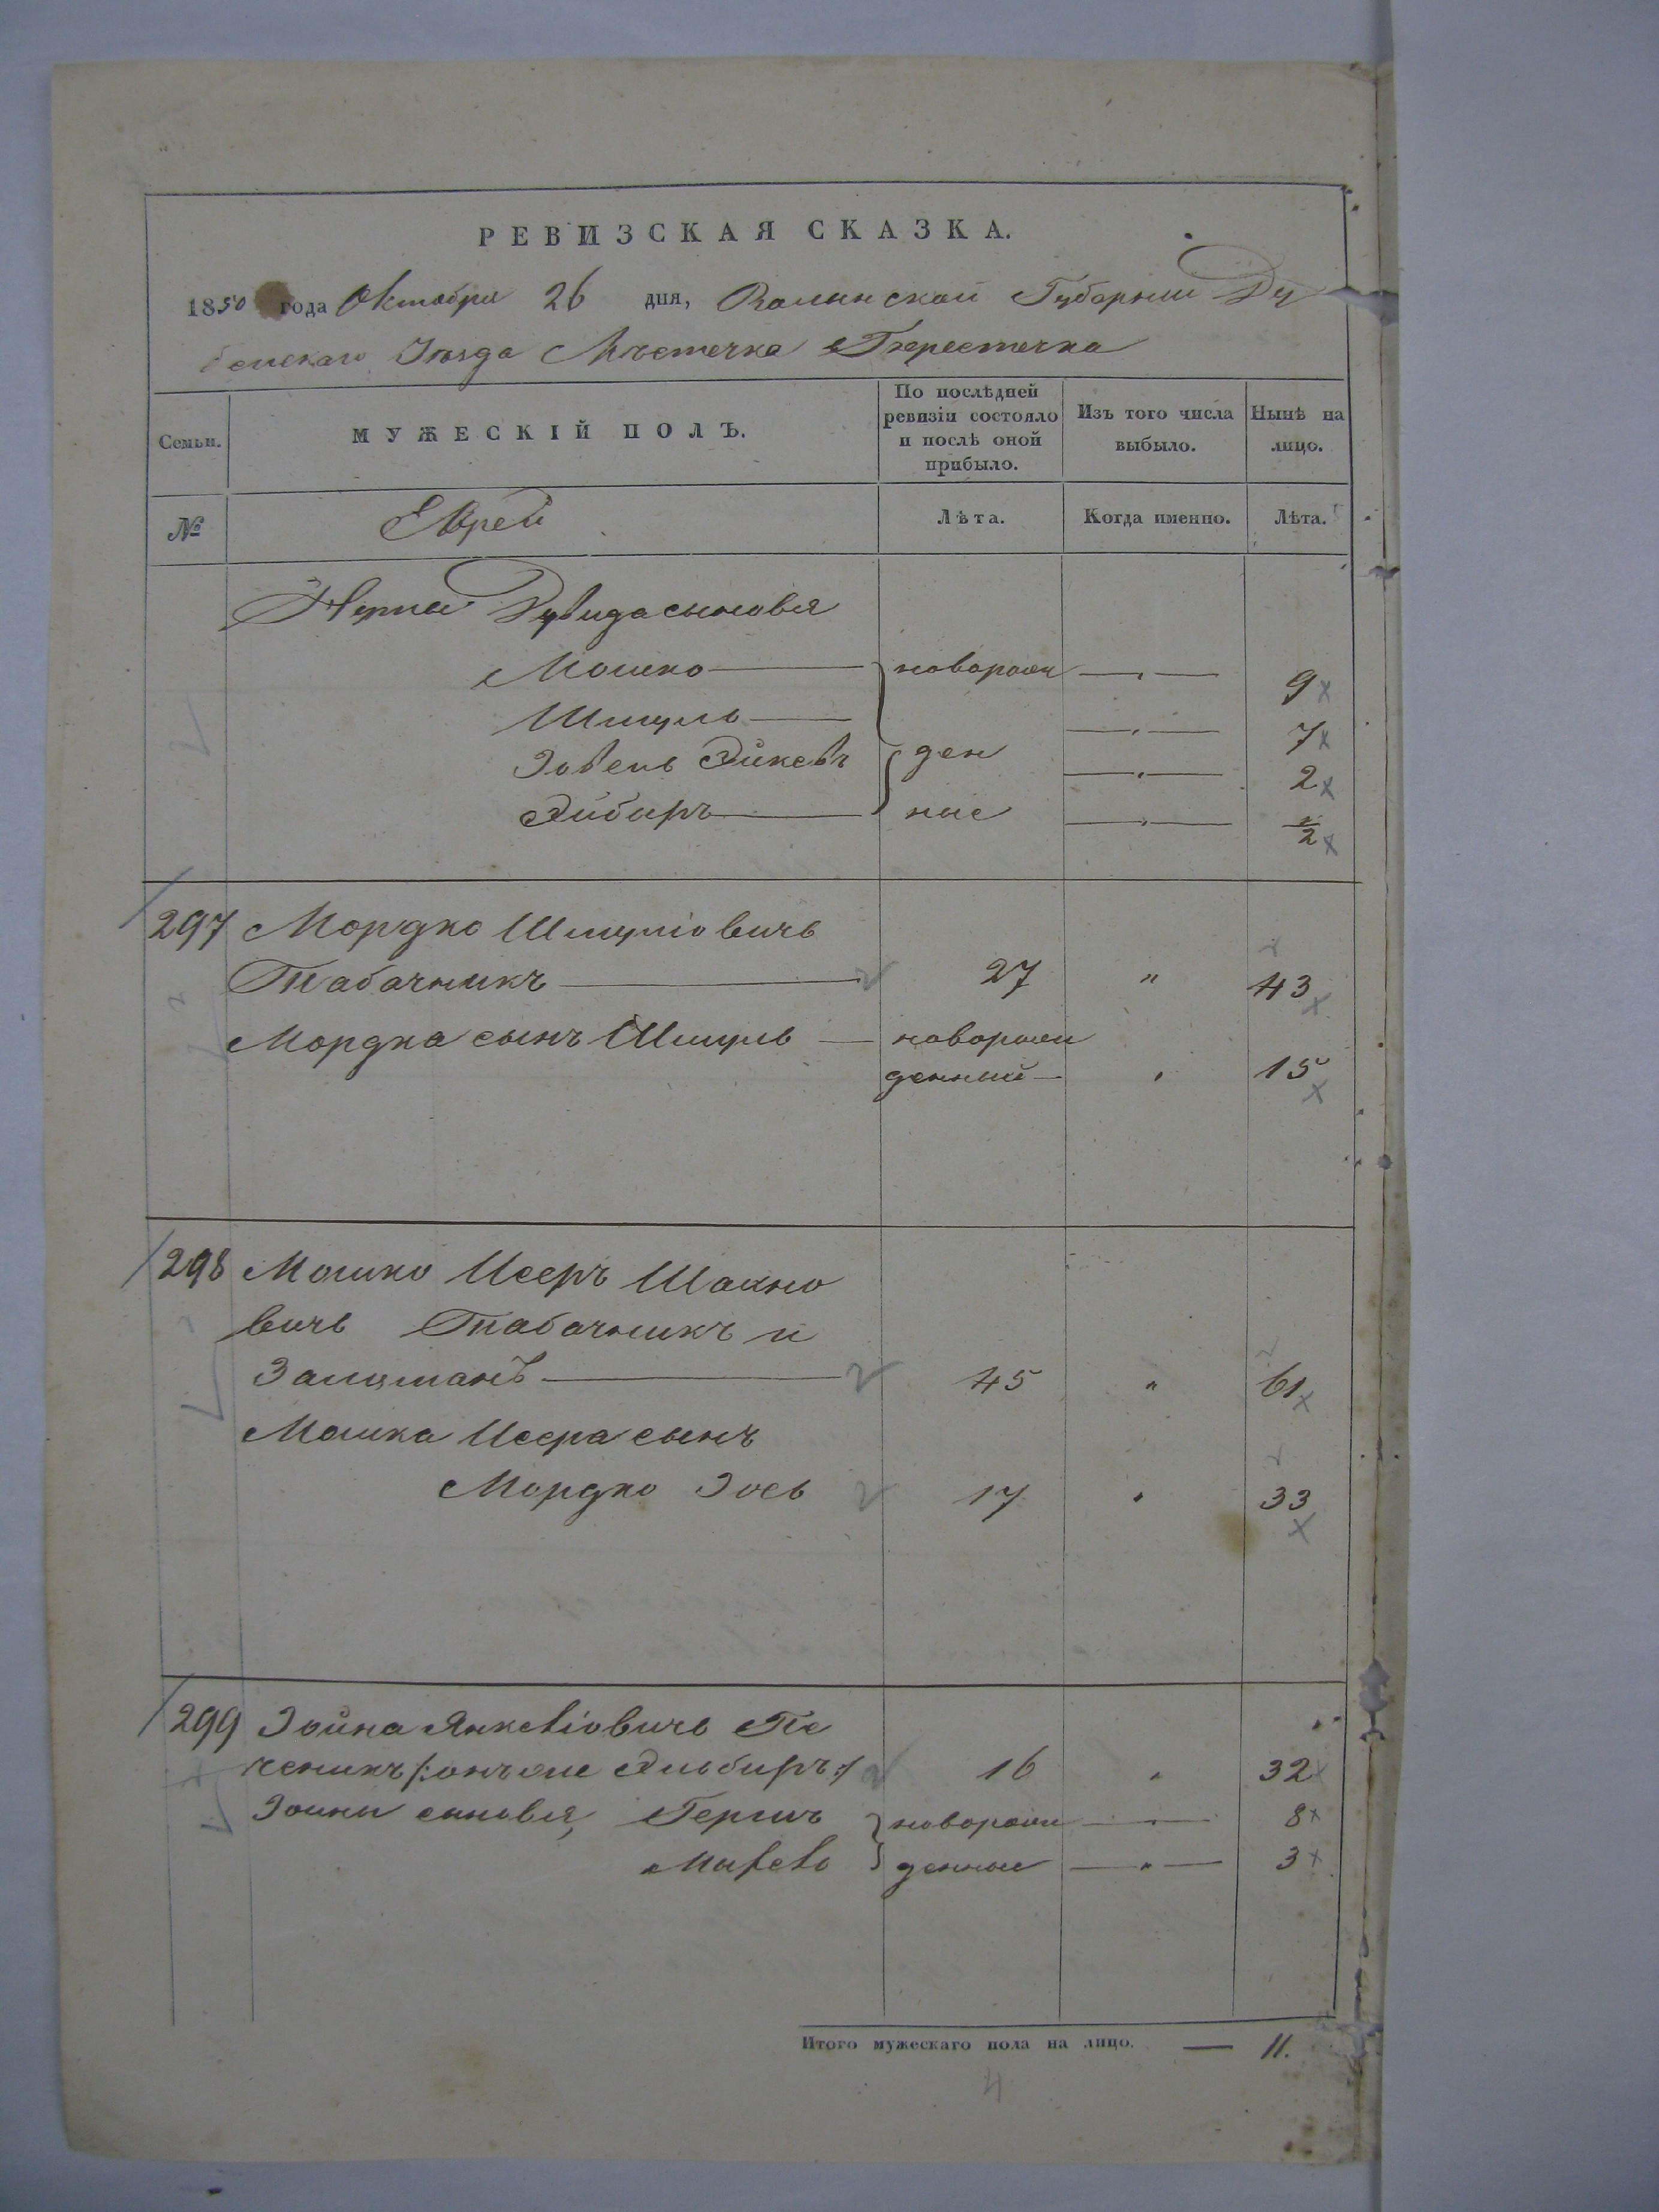 РЕВИЗСКАЯ СКАЗКА.
1850 года Октября 26 дня, Волынской Губерніи Ду
бенскаго Уѣзда Мѣстечка Берестечка
Семьи.
МУЖЕСКІЙ ПОЛЪ.
По послѣдней ревизіи состояло и послѣ оной прибыло.
Изъ того числа выбыло.
Нынѣ на лицо.
№
Еврей
Лѣта.
Когда именно.
Лѣта.
Дувида сыновья
Мошко — новорож — " — 9
Шмуль — — " — 7
ден — " — 2
ные — " — ½
297 Мордко Шмуліовичъ
Табачникъ — 27 " 43
Мордка сынъ Шмуль — новорож
денный — " 15
298 Мошко Исеръ Шахно
вичъ Табачникъ и
Залцманъ — 45 " 61
Мошка Исера сынъ
Мордко Іось 17 " 33
299 Іойна Янкеліовичъ Пе
ченикъ /: онъ же Эльбиръ :/ 16 " 32
Іойны сыновья, Гершъ новорож — " — 8
денные — " — 3
Итого мужескаго пола на лицо. — 11.
4